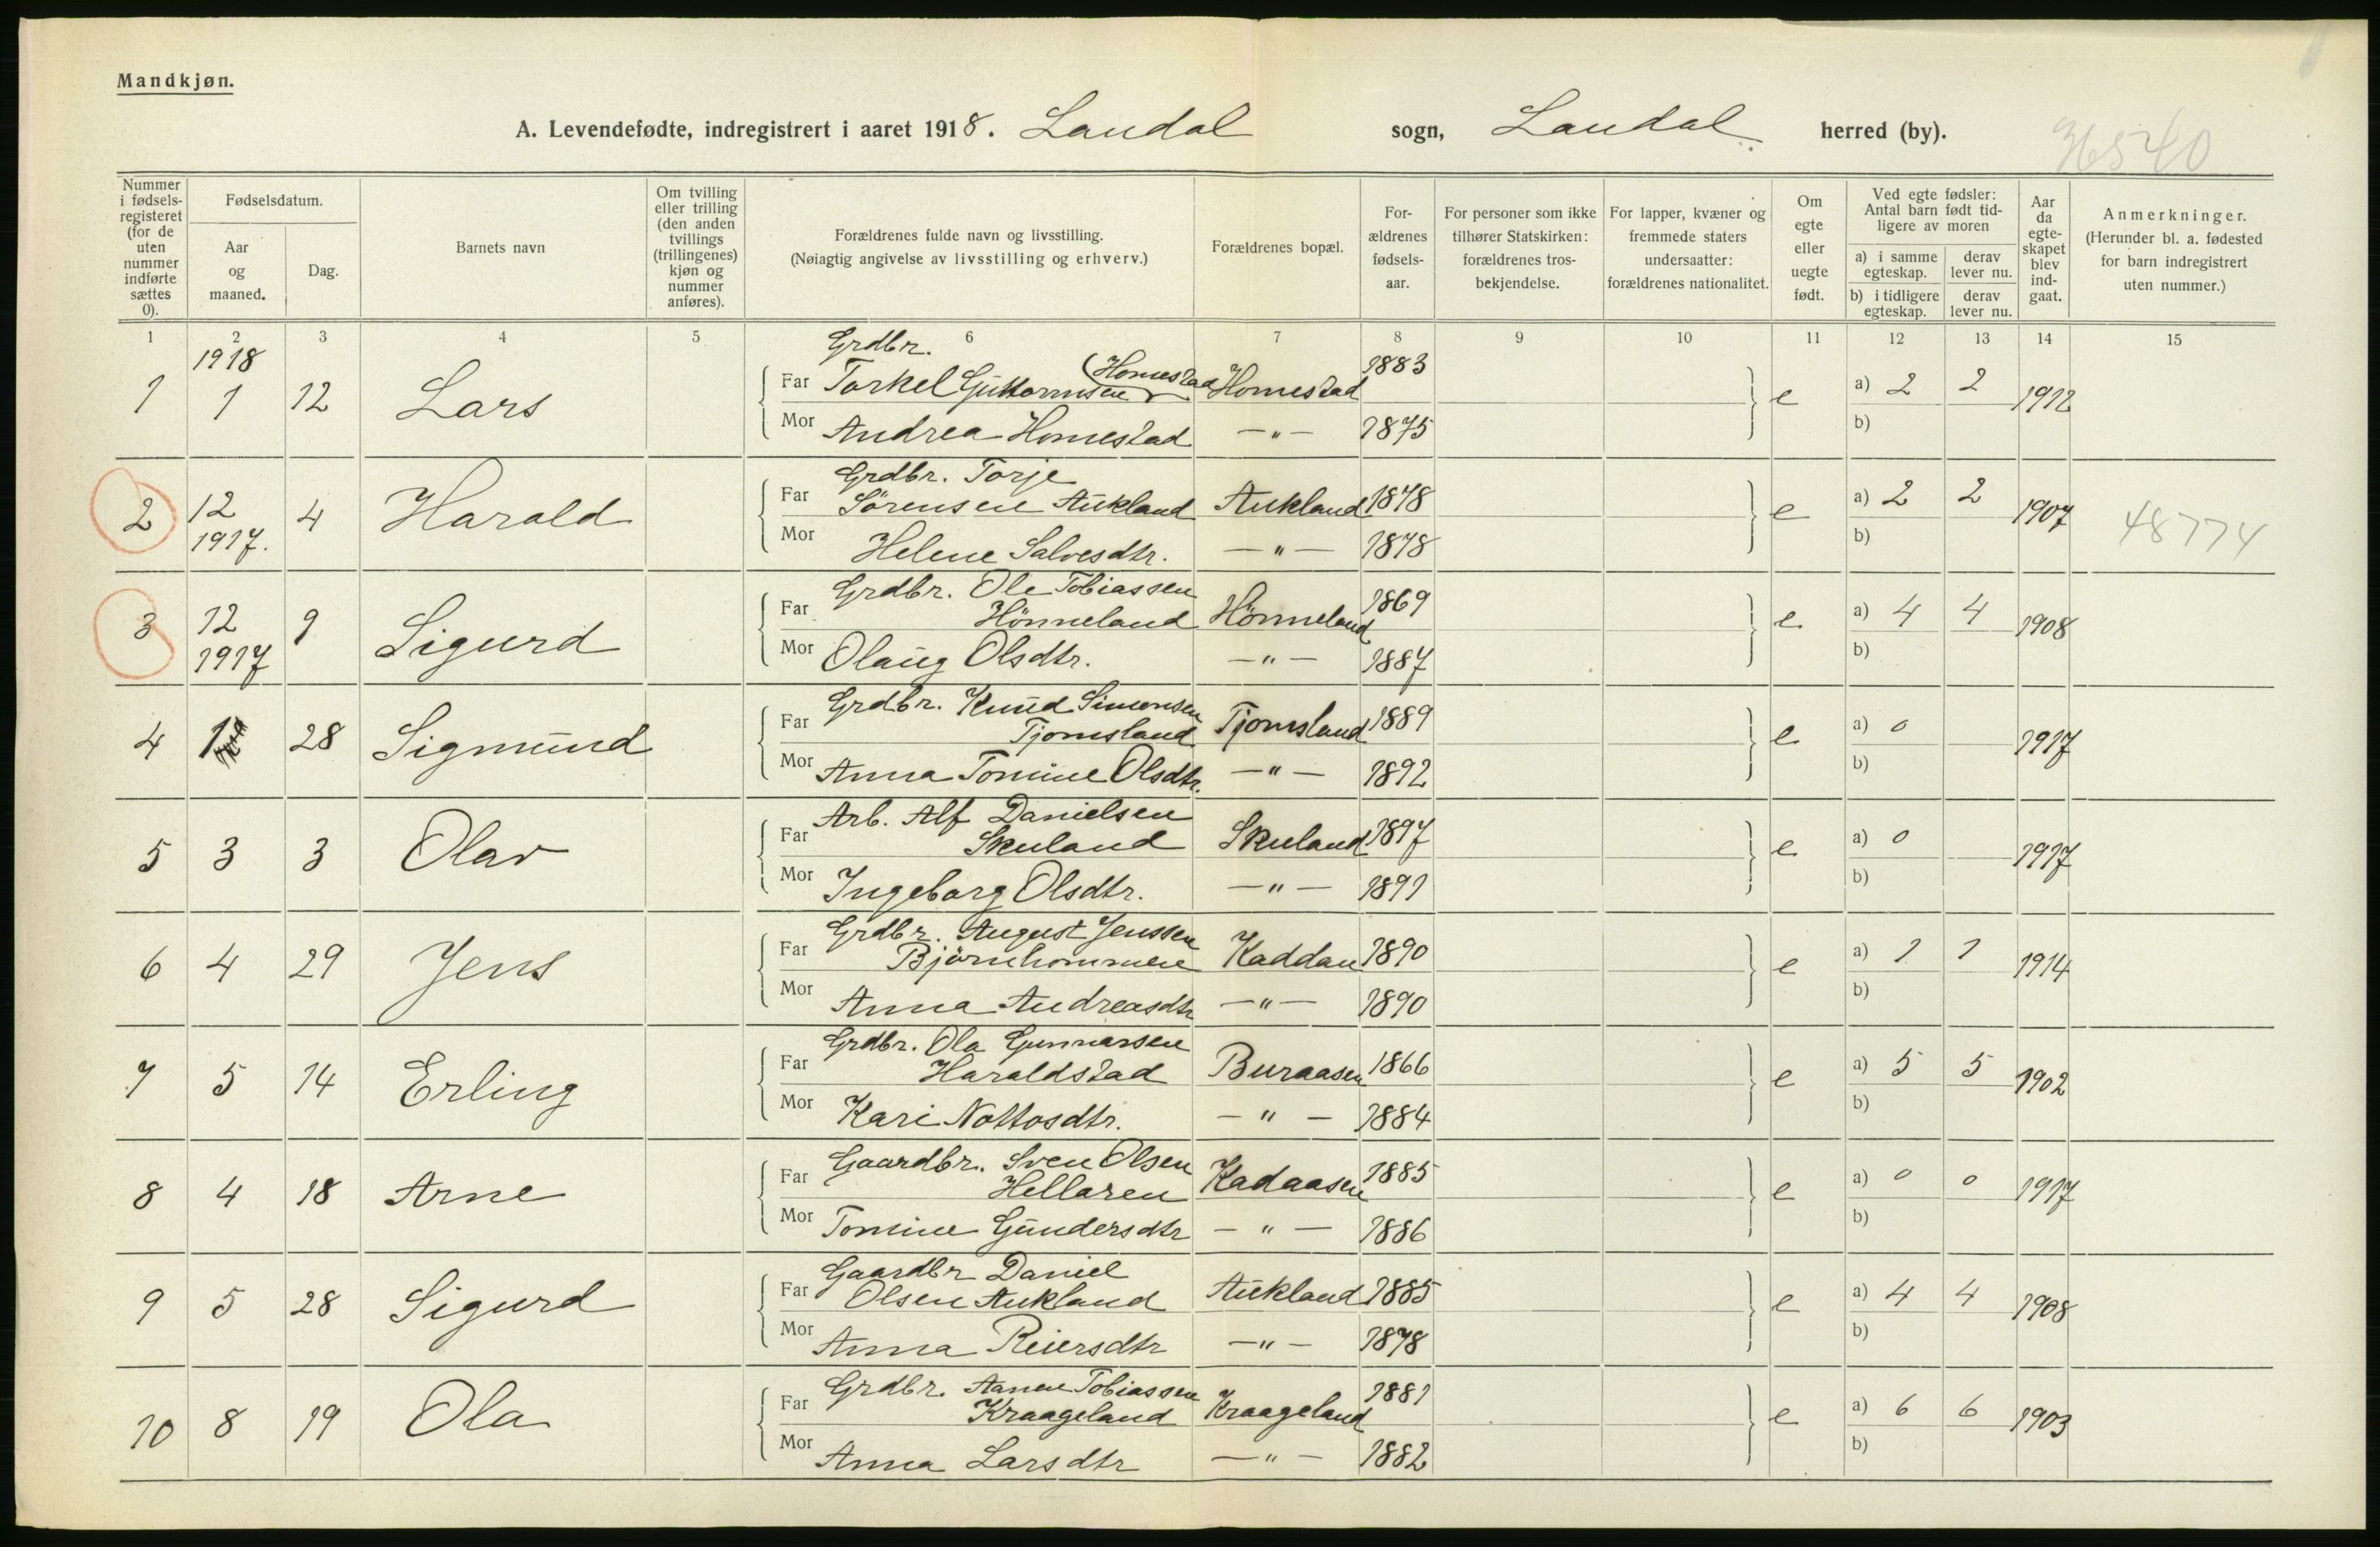 Mandkjøn.
A. Levendefødte, indregistrert i aaret 1918. Laudal sogn, Laudal herred (by).
36540
Nummer i fødselsregisteret (for de uten nummer indførte sættes 0).
Fødselsdatum.
Aar og maaned.
Dag.
Barnets navn
Om tvilling eller trilling (den anden tvillings (trillingenes) kjøn og nummer anføres).
Forældrenes fulde navn og livsstilling.
(Nøiagtig angivelse av livsstilling og erhverv.)
Forældrenes bopæl.
For-ældrenes fødsels-aar.
For personer som ikke tilhører Statskirken: forældrenes tros-bekjendelse.
For lapper, kvæner og fremmede staters undersaatter: forældrenes nationalitet.
Om egte eller uegte født.
Ved egte fødsler: Antal barn født tid-ligere av moren
a) i samme egteskap. derav lever nu.
b) i tidligere egteskap. derav lever nu.
Aar da egte-skapet blev ind-gaat.
Anmerkninger.
(Herunder bl. a. fødested for barn indregistrert uten nummer.)
1 2 3 4 5 6 7 8 9 10 11 12 13 14 15
1918 Grdbr.
1 1 12 Lars Far Torkel Guttormsen (Homestad) Homestad 1883 e a) 2 2 1912
Mor Andrea Homestad —"— 1875 b)
Grdbr. Torje
2 12 1917. 4 Harald Far Sørensen Aukland Aukland 1878 e a) 2 2 1907 48774
Mor Helene Salvesdtr. —"— 1878 b)
Grdbr. Ole Tobiassen
3 12 1917 9 Sigurd Far Hönneland Hönneland 1869 e a) 4 4 1908
Mor Olaug Olsdtr. —"— 1887 b)
Grdbr. Knud Simonsen
4 1 28 Sigmund Far Tjomsland Tjomsland 1889 e a) 0 1917
Mor Anna Tomine Olsdtr. —"— 1892 b)
Arb. Alf Danielsen
5 3 3 Olav Far Skuland Skuland 1897 e a) 0 1917
Mor Ingeborg Olsdtr. —"— 1891 b)
Grdbr. August Jenssen
6 4 29 Jens Far Björnhommen Kaddan 1890 e a) 1 1 1914
Mor Anna Andreasdtr —"— 1890 b)
Grdbr. Ola Gunnarsen
7 5 14 Erling Far Haraldstad Buraasen 1866 e a) 5 5 1902
Mor Kari Nottosdtr. —"— 1884 b)
Gaardbr. Sven Olsen
8 4 18 Arne Far Hellaren Kadaasen 1885 e a) 0 0 1917
Mor Tomine Gundersdtr —"— 1886 b)
Gaardbr Daniel
9 5 28 Sigurd Far Olsen Aukland Aukland 1885 e a) 4 4 1908
Mor Anna Reiersdtr —"— 1878 b)
Grdbr. Aanen Tobiassen
10 8 19 Ola Far Kraageland Kraageland 1881 e a) 6 6 1903
Mor Anna Larsdtr —"— 1882 b)